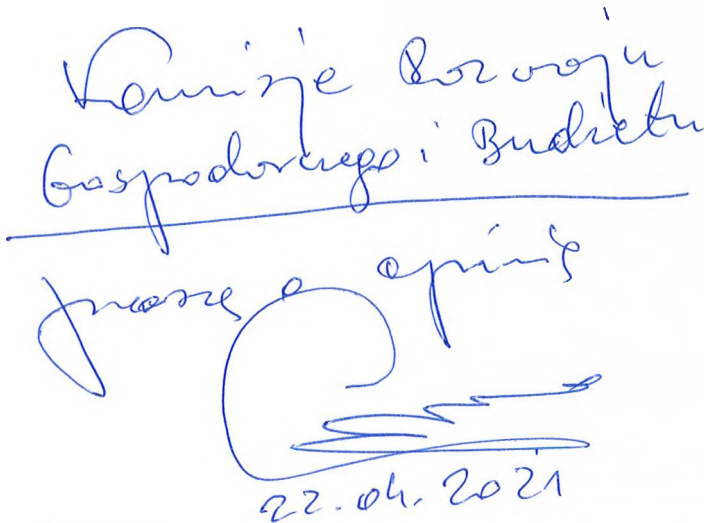 Komisję Rozwoju
Gospodarczego i Budżetu
proszę o opinię
22.04.2021